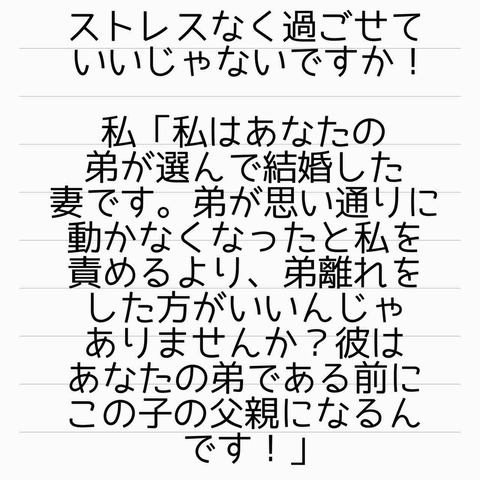 ストレスなく過ごせて
いいじゃないですか！
私「私はあなたの
弟が選んで結婚した
妻です。弟が思い通りに
動かなくなったと私を
責めるより、弟離れを
した方がいいんじゃ
ありませんか？彼は
あなたの弟である前に
この子の父親になるん
です！」